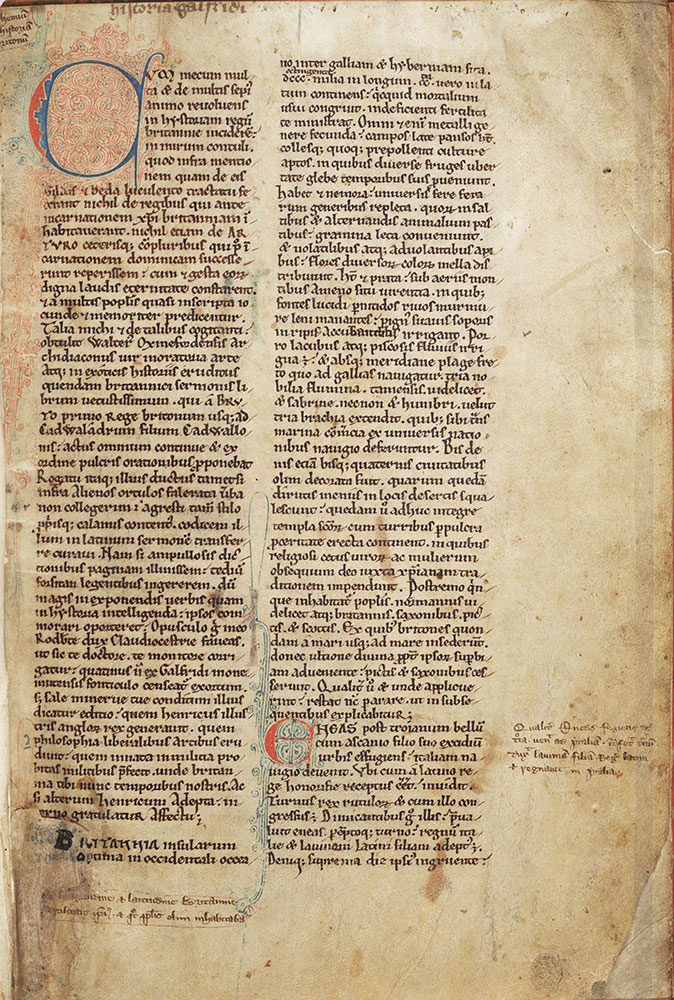 historia galfridi
historia
Cum mecum mul
ta & de multis sepi9
animo revolvens
in hystoriam regum
britannie inciderem
in mirum contuli.
quod infra mentio
nem quam de eis
Gildas & beda luculento tractatu fe
cerant nichil de regibus qui ante
incarnationem xpi britanniam in
habitaverant. nichil etiam de AR
TVRO ceterisq; cōpluribus qui p9 in
carnationem dominicam successe
runt reperissem. cum & gesta eorum
digna laudis eternitate constarent.
& a multis poplis quasi inscripta io
cunde & memoriter predicentur.
Talia michi & de talibus cogitanti.
obtulit Walter Oxinefordensis Ar
chidiaconus vir in oratoria arte
atq; in exoticis historiis eruditus
quendam britannici sermonis li
brum vetustissimum. qui a BRV
TO primo Rege britonum usq; ad
Cadwaladrum filium Cadwallo
nis. actus omnium continue & ex
ordine pulcris orationibus pponebat
Rogatu itaq; illius ductus tametsi
infra Alienos ortulos falerata uba
non collegerim. agresti tam stilo
ppriisq; calamis contentus. codicem il
lum in latinum sermonē transfer
re curavi. Nam si ampullosis dic
tionibus paginam illinissem. tedium
forsitan legentibus ingererem. dum
magis in exponendis verbis quam
in hystoria intelligenda. ipsos com
morari oporteret. Opusculo g meo
Rodbte dux Claudiocestrie faveas.
ut sic te doctore. te monitore corri
gatur. quatinus n ex Galfridi mone
mutensis fonticulo censeat exortum.
s; sale minerve tue conditum illius
dicatur editio. quem henricus illus
tris anglor rex generavit. quem
philosophia liberalibus artibus eru
divit. quem innata in militia pro
bitas militibus pfecit. unde britan
nia tibi nunc temporibus nostris. Ac
si alterum henricum Adepta. in
terno gratulatur Affectu;
BRITANNIA insularum
optima in occidentali occea
& latitudine Britannie
& q pplis olim inhabitaba
no inter galliam & hyberniam sita.
dccc. milia in longum. cc. vero in la
tum continens. qcquid mortalium
usui congruit. indeficienti fertilita
te ministrat. Omni & eni metalli ge
nere fecunda. campos late pansos ht.
collesq; quoq; prepollenti culture
aptos. in quibus diverse fruges uber
tate glebe temporibus suis proveniunt.
Habet & nemora. universis fere fera
rum generibus repleta. quor in sal
tibus & alternandis animalium pas
tibus. gramina leta conveniunt.
& volatilibus atq; advolantibus api
bus. flores diversor color mella dis
tribuunt. ht & prata. sub aeriis mon
tibus ameno situ virentia. in quib;
fontes lucidi p nitidos rivos murmu
re leni manantes. pign suavis soporis
in ripis Accubantibus irrigant. Por
ro lacubus atq; piscosis fluviis irri
gua ÷. & absq; meridiane plage fre
to quo ad gallias navigatur. tria no
bilia flumina. tamensis. videlicet.
& sabrine. necnon & humbri. velut
tria brachia extendit. quib; sibi tns
marina cōmercia ex universis natio
nibus navigio deferuntur. Bis de
nis etiā bisq; quaternis civitatibus
olim decorata fuit. quarum quedā
dirutis meniis in locis desertis squa
lescunt. quedam u adhuc integre
templa scor cum turribus ppulcra
pceritate erecta continent. in quibus
religiosi cetus viror ac mulierum
obsequium deo iuxta xpianam tra
ditionem impendunt. Postremo qn
que inhabitat poplis. normannis vi
delicet atq; britannis. saxonibus. pic
tis. & scottis. Ex quib britones quon
dam a mari usq; ad mare insederunt.
donec ultione divina ppt ipsor supbi
am adveniente. pictis & saxonibus ces
serunt. Qualit u & unde applicue
rint. restat nc parare. ut in subse
quentibus explicabitur;
ENEAS post troianum bellum
cum ascanio filio suo excidium
urbis effugiens. italiam na
vigio devenit. Ubi cum a latino re
ge honorifice receptus eet. invidit
Turnus rex rutulor & cum illo con
gressus; Dimicantibus g illis. pva
luit eneas. pemptoq; turno. regnum ita
lie & laviniam latini filiam adeptus;
Deniq; suprema die ipsius ingruente.
Qualit Eneas
lavinia filia Reg latin
& regnavit in italia